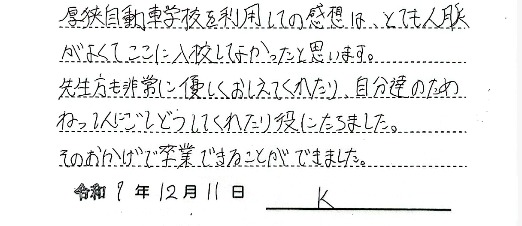 厚狭自動車学校を利用しての感想は、とても人脈
がよくてここに入校してよかったと思います。
先生方も非常に優しくおしえてくれたり、自分達のため
ねっしんにごしどうしてくれたり役にたちました。
そのおかげで卒業できることができました。
令和 9 年 12 月 11 日 K